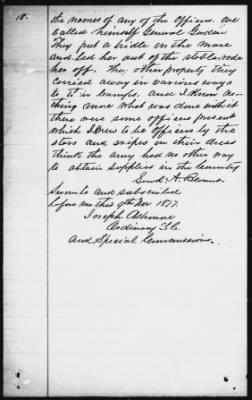 18.
the names of any of the officers one
called himself General Godin
They put a bridle on the mare
and led her out of the stable & rode
her off. The other property they
carried away in various ways
to their camps, and I know no-
thing more what was done with it
there were some officers present
which I knew to be officers by the
stars and stripes on their dress
think the army had no other way
to obtain supplies in the country
Sworn to and subscribed
before me this 9th Nov 1877.
Joseph
Ordinary
and Special Commissioner.